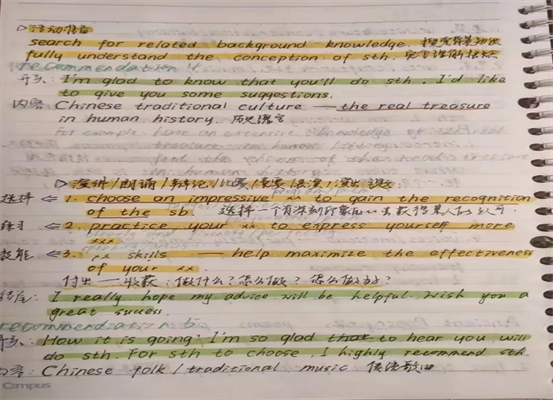 ▷活动准备
search for related background knowledge. 搜索背景知识
fully understand the conception of sth. 完全理解
recommendation
开头: I'm glad to know that you'll do sth. I'd like
to give you some suggestions.
内容: Chinese traditional culture — the real treasure
in human history. 历史瑰宝
▷演讲/朗诵/辩论/比赛/
选择 ⇐ 1. choose an impressive xx to gain the recognition
of the sb. 选择一个有深刻印象的xx去获得某人的认可.
练习 ⇐ 2. practice your xx to express yourself more
xx
技能 ⇐ 3. xx skills — help maximize the effectiveness
of your xx
付出 — 收获: 做什么? 怎么做?
结尾: I really hope my advice will be helpful. Wish you a
great success.
recommendation
开头: How it is going. I'm so glad that to hear you will
do sth. For sth to choose, I highly recommend sth.
内容: Chinese folk / traditional music
Campus